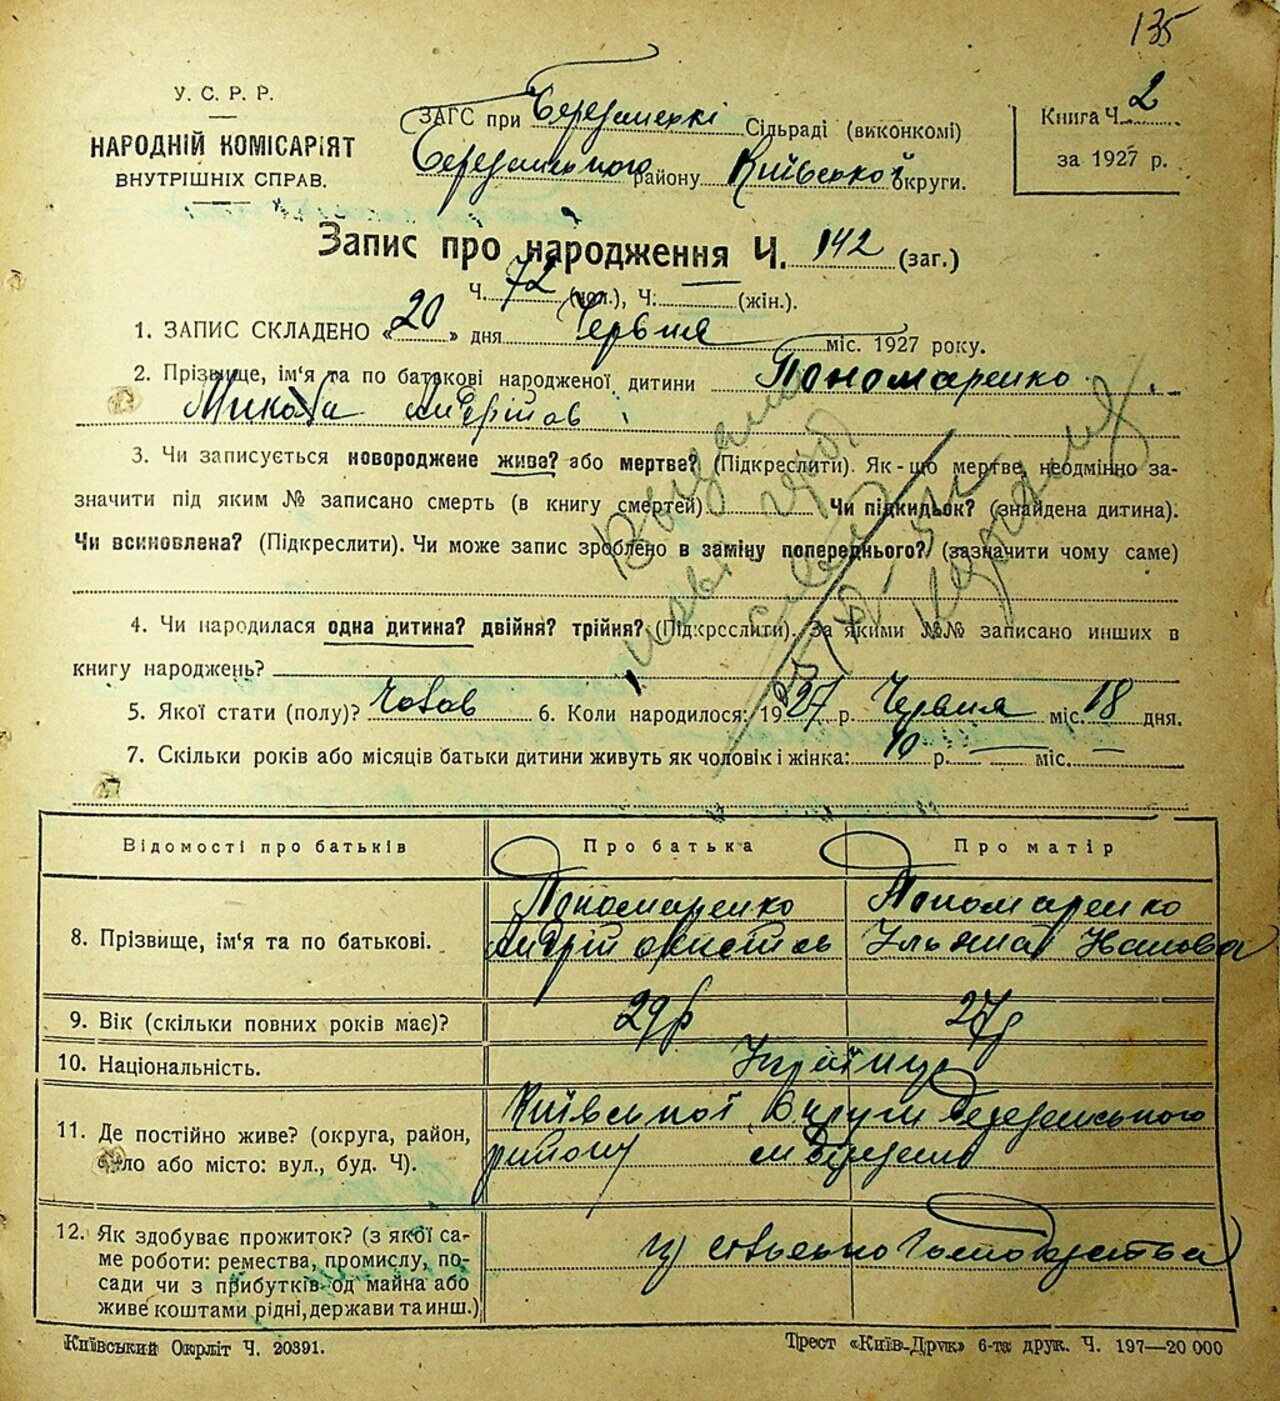 135
У. С. Р. Р.
НАРОДНІЙ КОМІСАРІЯТ
ВНУТРІШНІХ СПРАВ.
ЗАГС при Березанскі Сільраді (виконкомі)
Березанського району Київської округи.
Книга Ч. 2
за 1927 р.
Запис про народження Ч. 142 (заг.)
Ч. 72 (чол.), Ч. — (жін.).
1. ЗАПИС СКЛАДЕНО «20» дня Червня міс. 1927 року.
2. Прізвище, ім'я та по батькові народженої дитини Пономаренко
Микола Андріїов
3. Чи записується новороджене жива? або мертве? (Підкреслити). Як-що мертве, неодмінно за-
значити під яким № записано смерть (в книгу смертей) Чи підкидьок? (знайдена дитина).
Чи всиновлена? (Підкреслити). Чи може запис зроблено в заміну попереднього? (зазначити чому саме)
4. Чи народилася одна дитина? двійня? трійня? (Підкреслити). За якими №№ записано инших в
книгу народжень?
5. Якої стати (полу)? чолов 6. Коли народилося: 1927 р. Червня міс. 18 дня.
7. Скільки років або місяців батьки дитини живуть як чоловік і жінка: 10 р. — міс. —
Відомості про батьків Про батька Про матір
Пономаренко Пономаренко
8. Прізвище, ім'я та по батькові. Андрій Ульяна Іванова
9. Вік (скільки повних років має)? 29 р 27 р
10. Національність. Українці
Київської Округи Березанського
11. Де постійно живе? (округа, район, району
село або місто: вул., буд. Ч).
12. Як здобуває прожиток? (з якої са-
ме роботи: ремества, промислу, по- сільського господарства
сади чи з прибутків од майна або
живе коштами рідні, держави та инш.)
Київський Окрліт Ч. 20391.
Трест «Київ-Друк» 6-та друк. Ч. 197—20 000